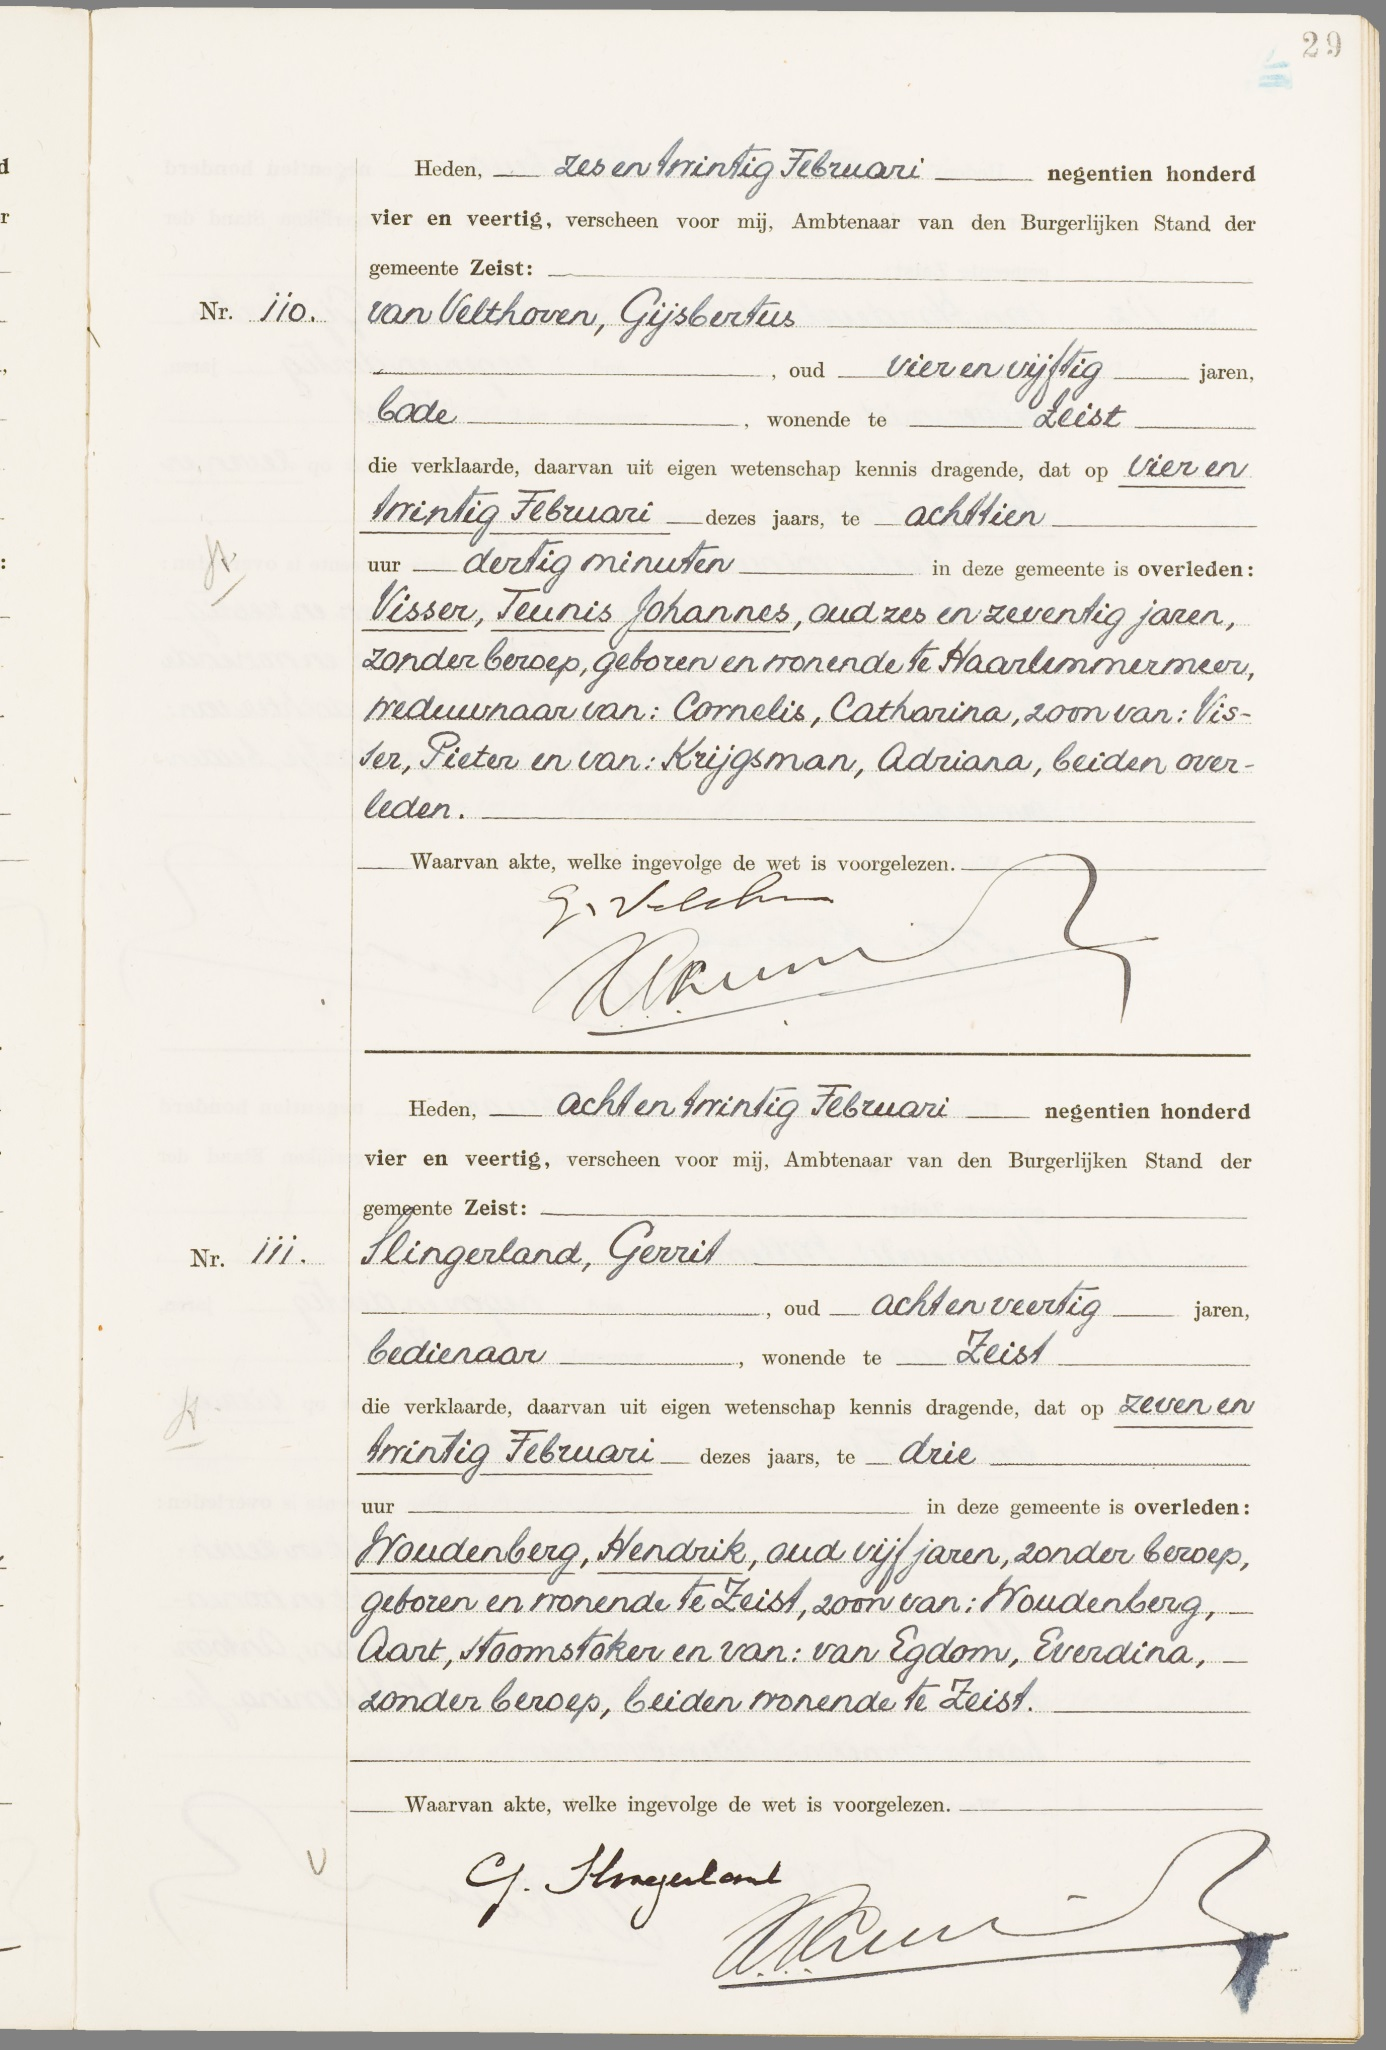 29
Heden, zes en twintig Februari negentien honderd
vier en veertig, verscheen voor mij, Ambtenaar van den Burgerlijken Stand der
gemeente Zeist:
Nr. 110. van Velthoven, Gijsbertus
, oud vier en vijftig jaren,
bode , wonende te Zeist
die verklaarde, daarvan uit eigen wetenschap kennis dragende, dat op vier en
twintig Februari dezes jaars, te achttien
uur dertig minuten in deze gemeente is overleden:
Visser, Teunis Johannes, oud zes en zeventig jaren,
zonder beroep, geboren en wonende te Haarlemmermeer,
weduwnaar van: Cornelis, Catharina, zoon van: Vis-
ser, Pieter en van: Krijgsman, Adriana, beiden over-
leden.
Waarvan akte, welke ingevolge de wet is voorgelezen.
Heden, acht en twintig Februari negentien honderd
vier en veertig, verscheen voor mij, Ambtenaar van den Burgerlijken Stand der
gemeente Zeist:
Nr. 111. Slingerland, Gerrit
, oud acht en veertig jaren,
bedienaar , wonende te Zeist
die verklaarde, daarvan uit eigen wetenschap kennis dragende, dat op zeven en
twintig Februari dezes jaars, te drie
uur in deze gemeente is overleden:
Woudenberg, Hendrik, oud vijf jaren, zonder beroep,
geboren en wonende te Zeist, zoon van: Woudenberg,
Aart, stoomstoker en van: van Egdom, Everdina,
zonder beroep, beiden wonende te Zeist.
Waarvan akte, welke ingevolge de wet is voorgelezen.
G. Slingerland